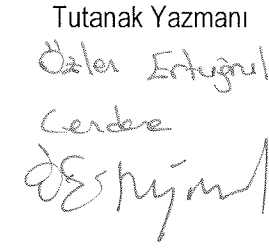 Tutanak Yazmanı
Özlen Ertuğrul
Cerdere